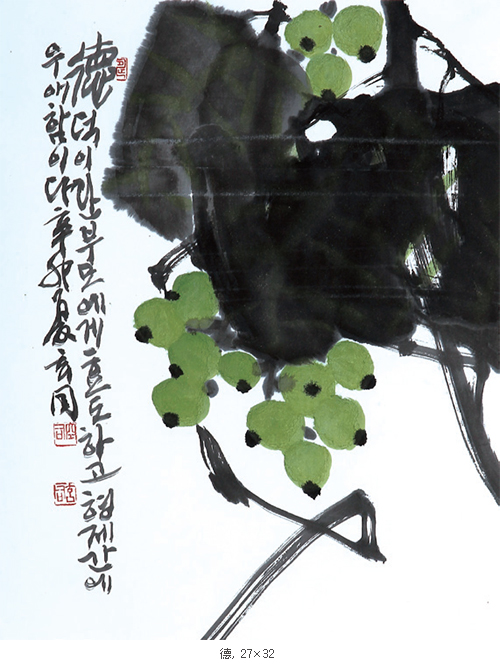 德덕이란부모에게효도하고 형제간에
우애함이다 辛卯夏 玄同
德, 27×32